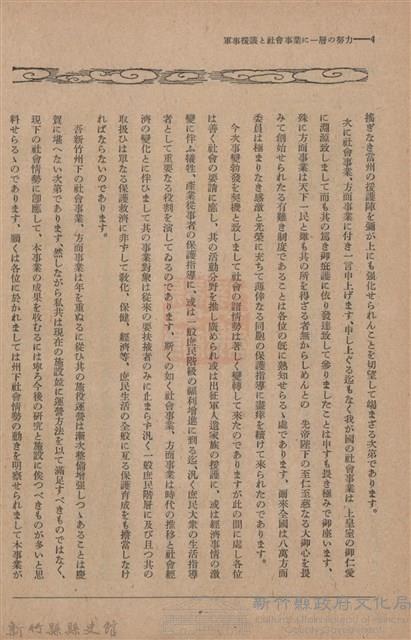 軍事援護と社會事業に一層の努力──4
搖ぎなき當州の援護陣を彌が上にも强化せられんことを切望して端まざる次第であります。
次に社會事業、方面事業に付き一言申上げます、申し上ぐる迄もなく我が國の社會事業は 上皇室の御仁愛
に淵源致しまして而も其の篤き御庇護に依り發達致して參りましたことは申すも畏き極みで御座います、
殊に方面事業は天下一民と雖も其の所を得ざる者無からしめんとの 先帝陛下の至仁至慈なる大御心を畏
みて創始せられたる有難き制度であることは各位の旣に熟知せらるゝ處であります、爾來全國は八萬方面
委員は極まりなき感激と光榮に充ちて薄倖なる同胞の保護指導に盡瘁を續けて來られたのであります。
今次事變勃發を契機と致しまして社會の諸情勢は著しく變轉して來たのでありますが此の間に處し各位
は善く社會の要請に應し、其の活動分野を推し廣められ或は出征軍人遺家族の援護に、或は經濟事情の激
變に伴ふ犧牲、產業從事者の保護指導に、或は一般庶民階級の福利增進に到る迄、汎く庶民大衆の生活指導
者として重要なる役割を演してゐるのであります、斯くの如く社會事業、方面事業は時代の推移と社會經
濟の變化とに伴ひまして其の事業對象は從來の要扶掖者のみに止まらず汎く一般庶民階層に及び且つ其の
取扱ひは單なる保護救濟に非ずして敎化、保健、經濟等、庶民生活の全般に亙る保護育成をも擔當しなけ
ればならないのであります。
吾新竹州下の社會事業、方面事業は年を重ねるに從ひ其の施設運營は漸次整備增强しつゝあることは慶
賀に堪へない次第でありますが、然しながら私共は現在の施設竝に運營方法を以て滿足すべきものではなく、
現下の社會情勢に卽應して、本事業の成果を收むるには寧ろ今後の研究と施設に俟つべきものが多いと思
料せらるゝのであります、願くは各位に於かれましては州下社會情勢の動きを明察せられまして本事業が
新竹縣縣史館
新竹縣政府文化局